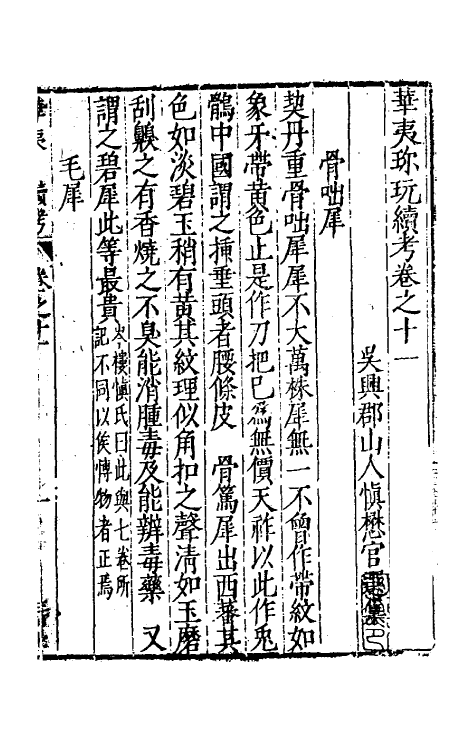 華夷珎玩續考卷之十一
吳興郡山人愼懋官
骨咄犀
契丹重骨咄犀犀不大萬株犀無一不曾作帶紋如
象牙帶黃色止是作刀把巳爲無價天祚以此作兎
鶻中國謂之揷垂頭者腰條皮　骨篤犀出西蕃其
色如淡碧玉稍有黃其紋理似角扣之聲清如玉磨
刮齅之有香燒之不臭能消腫毒及能辨毒藥　又
謂之碧犀此等最貴岑樓愼氏曰此與七卷所
記不同以俟愽物者正焉
毛犀
續考
卷之十一